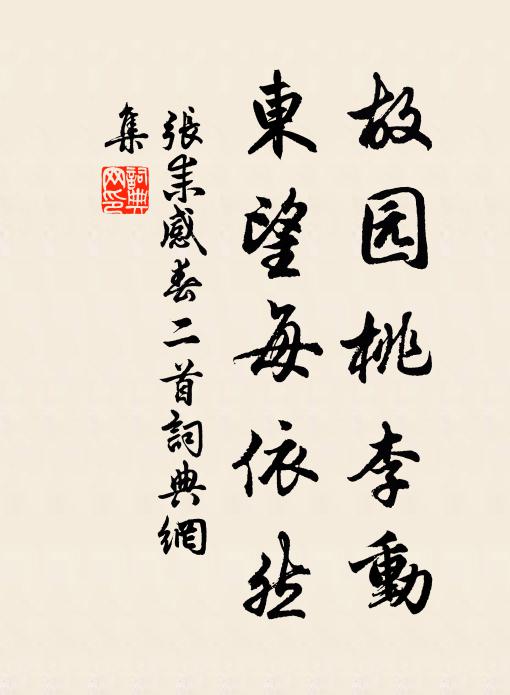 故园桃李動
東望每依然
張耒感春二首詞典網
集
詞典
网印